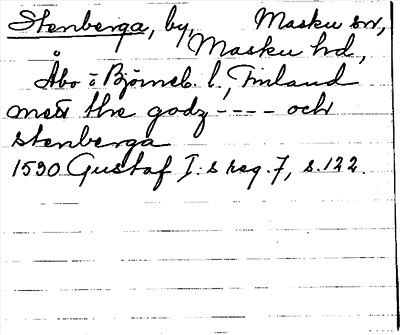 Stenberga, by, Masku sn,
Masku hd,
Åbo o Björneb. l., Finland
mett the godz ---- och
stenberga
1530 Gustaf I:s reg. 7, s. 122.